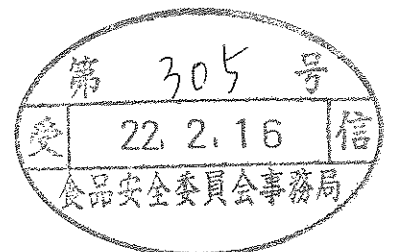 第 305 号
受 22. 2. 16 信
食品安全委員会事務局